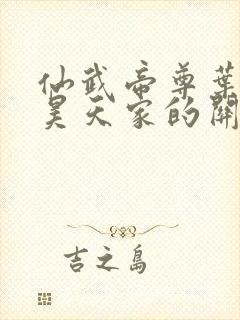 仙武帝尊葉
昊天家的開
吉之島